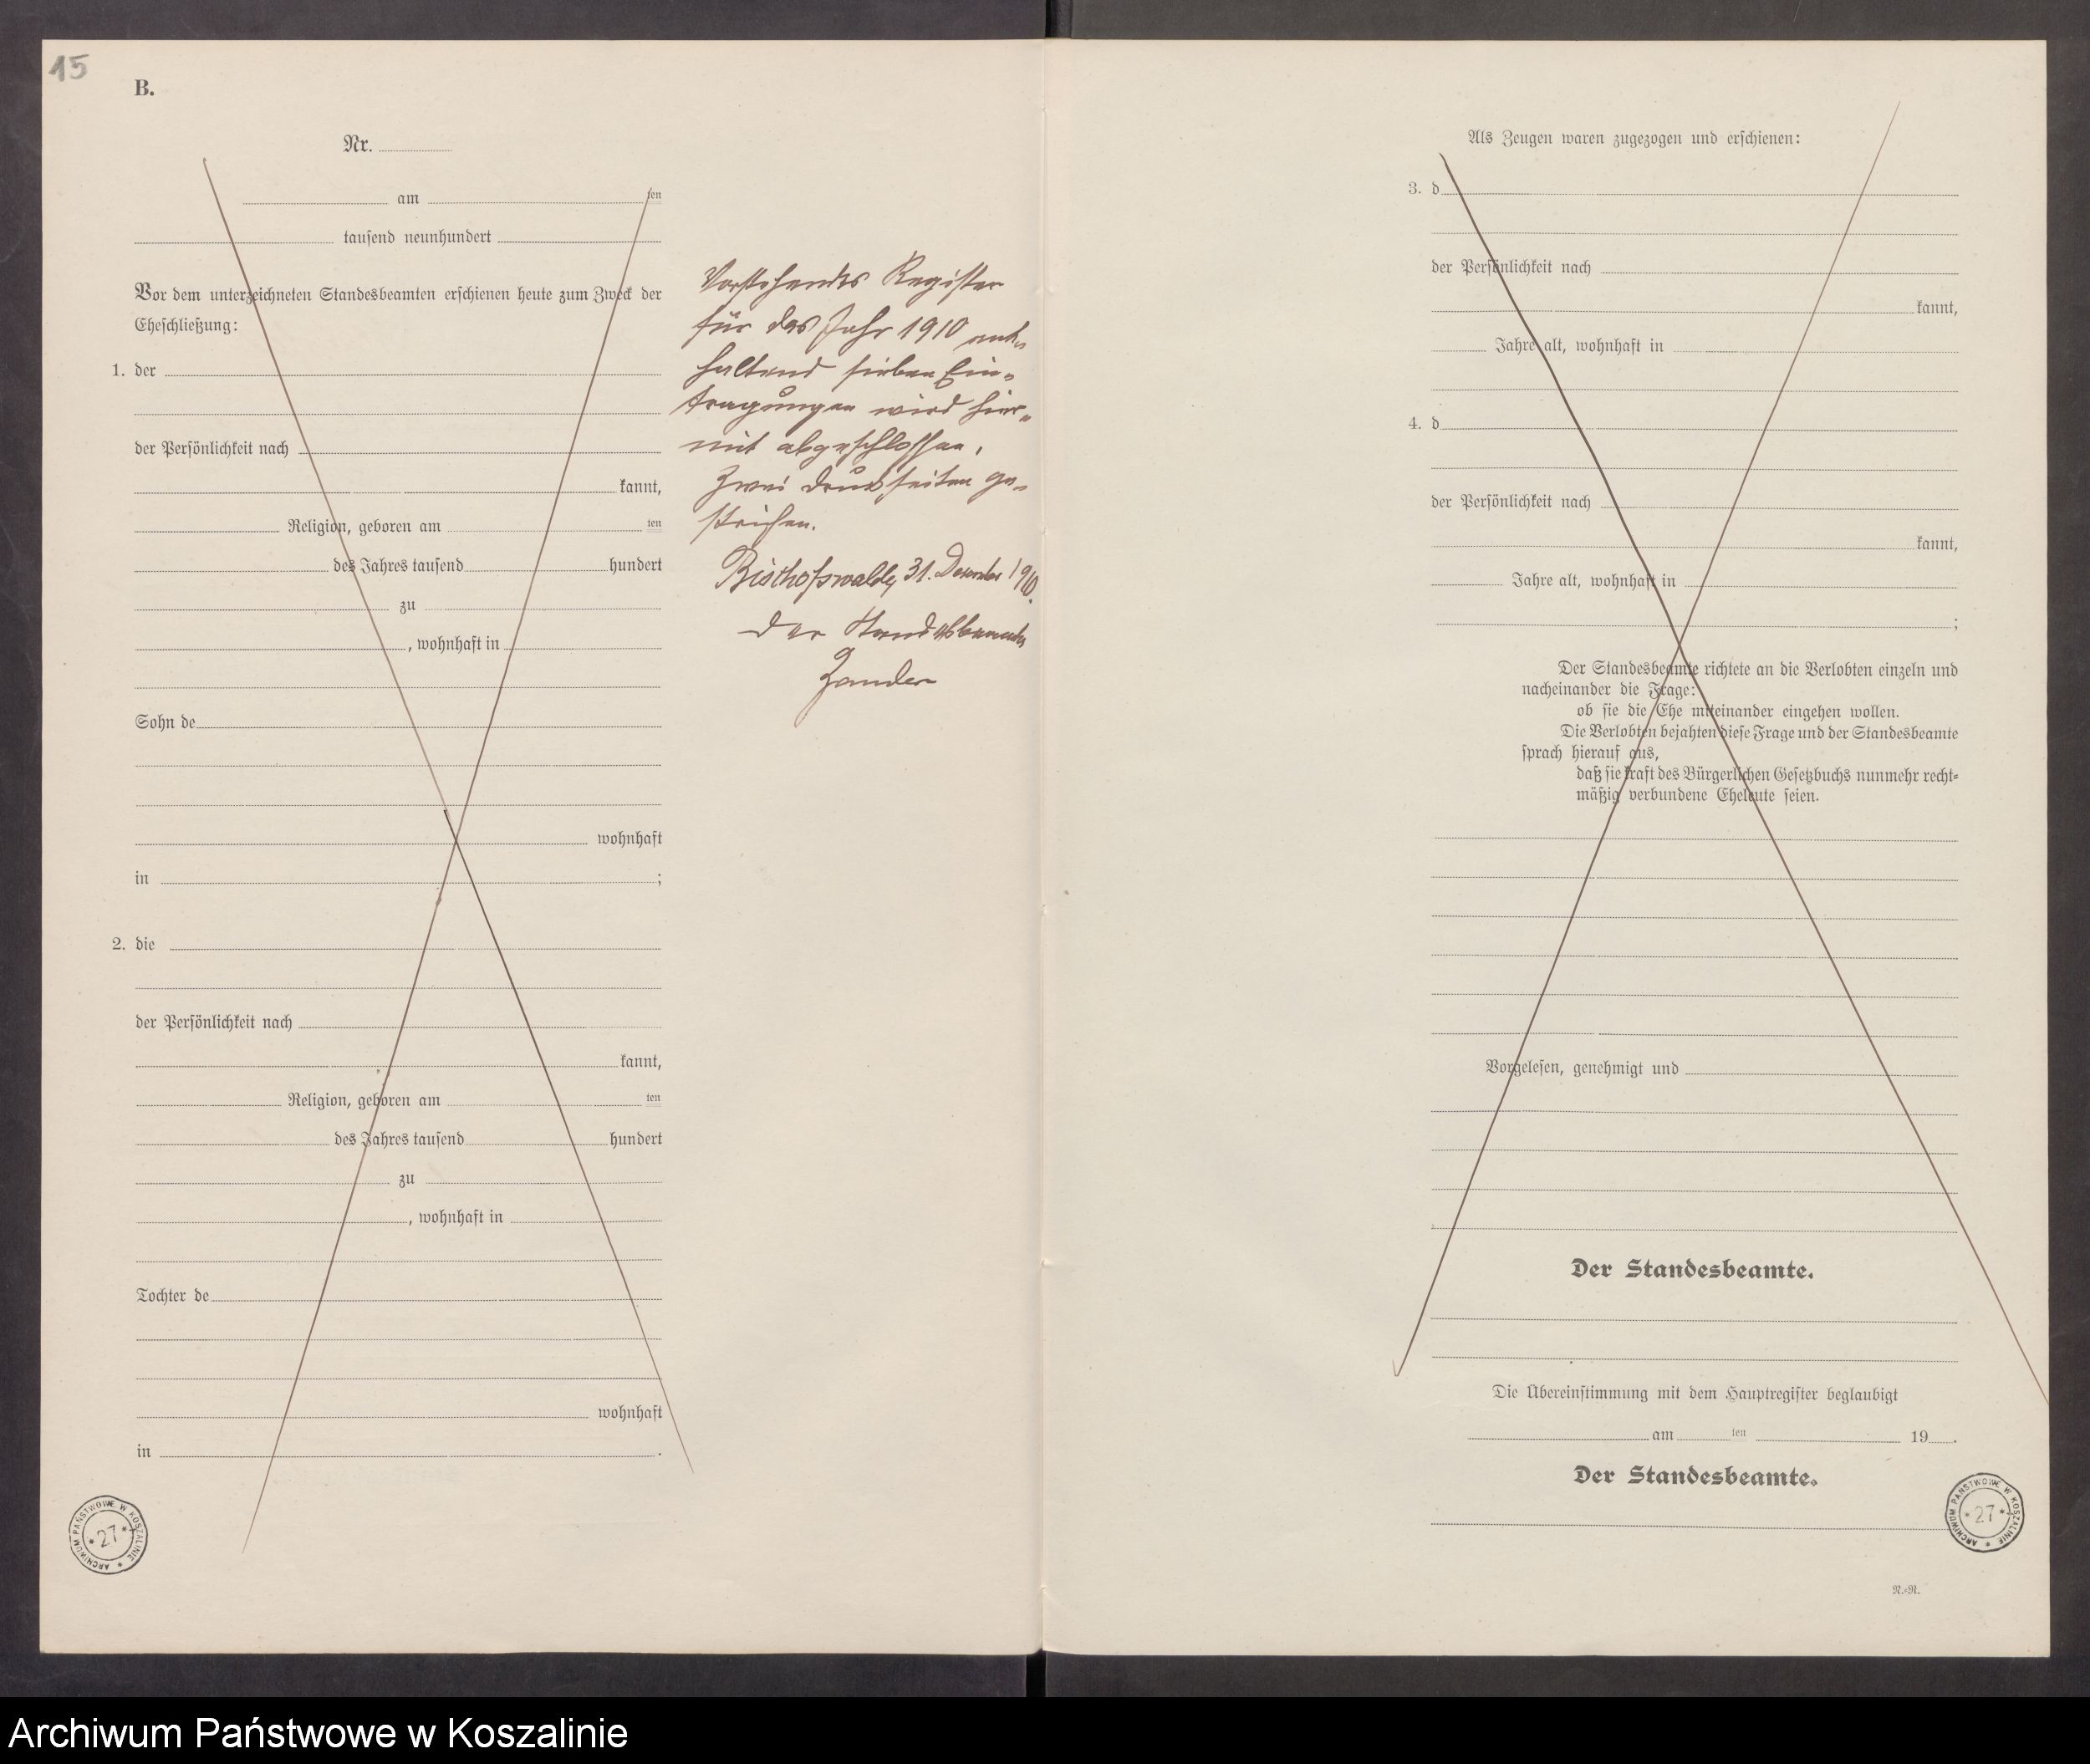 15
B.
Nr.
am ten
tausend neunhundert
Vor dem unterzeichneten Standesbeamten erschienen heute zum Zweck der
Eheschließung:
1. der
der Persönlichkeit nach
kannt,
Religion, geboren am ten
des Jahres tausend hundert
zu
, wohnhaft in
Sohn de
wohnhaft
in ;
2. die
der Persönlichkeit nach
kannt,
Religion, geboren am ten
des Jahres tausend hundert
zu
, wohnhaft in
Tochter de
wohnhaft
in .
Vorstehendes Register
für das Jahr 1910 ent-
haltend sieben Ein-
tragungen wird hier-
mit abgeschlossen.
Zwei Druckseiten ge-
strichen.
Bischofswalde, 31. Dezember 1910.
Der Standesbeamte
Zander
ARCHIWUM PAŃSTWOWE W KOSZALINIE
* 27 *
Als Zeugen waren zugezogen und erschienen:
3. d
der Persönlichkeit nach
kannt,
Jahre alt, wohnhaft in
4. d
der Persönlichkeit nach
kannt,
Jahre alt, wohnhaft in
;
Der Standesbeamte richtete an die Verlobten einzeln und
nacheinander die Frage:
ob sie die Ehe miteinander eingehen wollen.
Die Verlobten bejahten diese Frage und der Standesbeamte
sprach hierauf aus,
daß sie kraft des Bürgerlichen Gesetzbuchs nunmehr recht-
mäßig verbundene Eheleute seien.
Vorgelesen, genehmigt und
Der Standesbeamte.
Die Übereinstimmung mit dem Hauptregister beglaubigt
am ten 19 .
Der Standesbeamte.
ARCHIWUM PAŃSTWOWE W KOSZALINIE
* 27 *
N.-R.
Archiwum Państwowe w Koszalinie